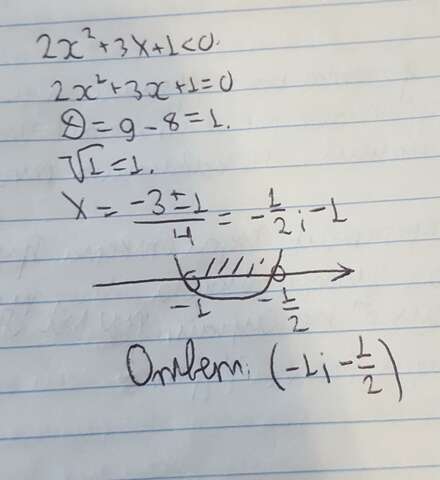 2x²+3x+1<0.
2x²+3x+1=0
D=9-8=1.
√1=1.
x = (-3±1)/4 = -1/2; -1
-1 -1/2
Ответ: (-1; -1/2)